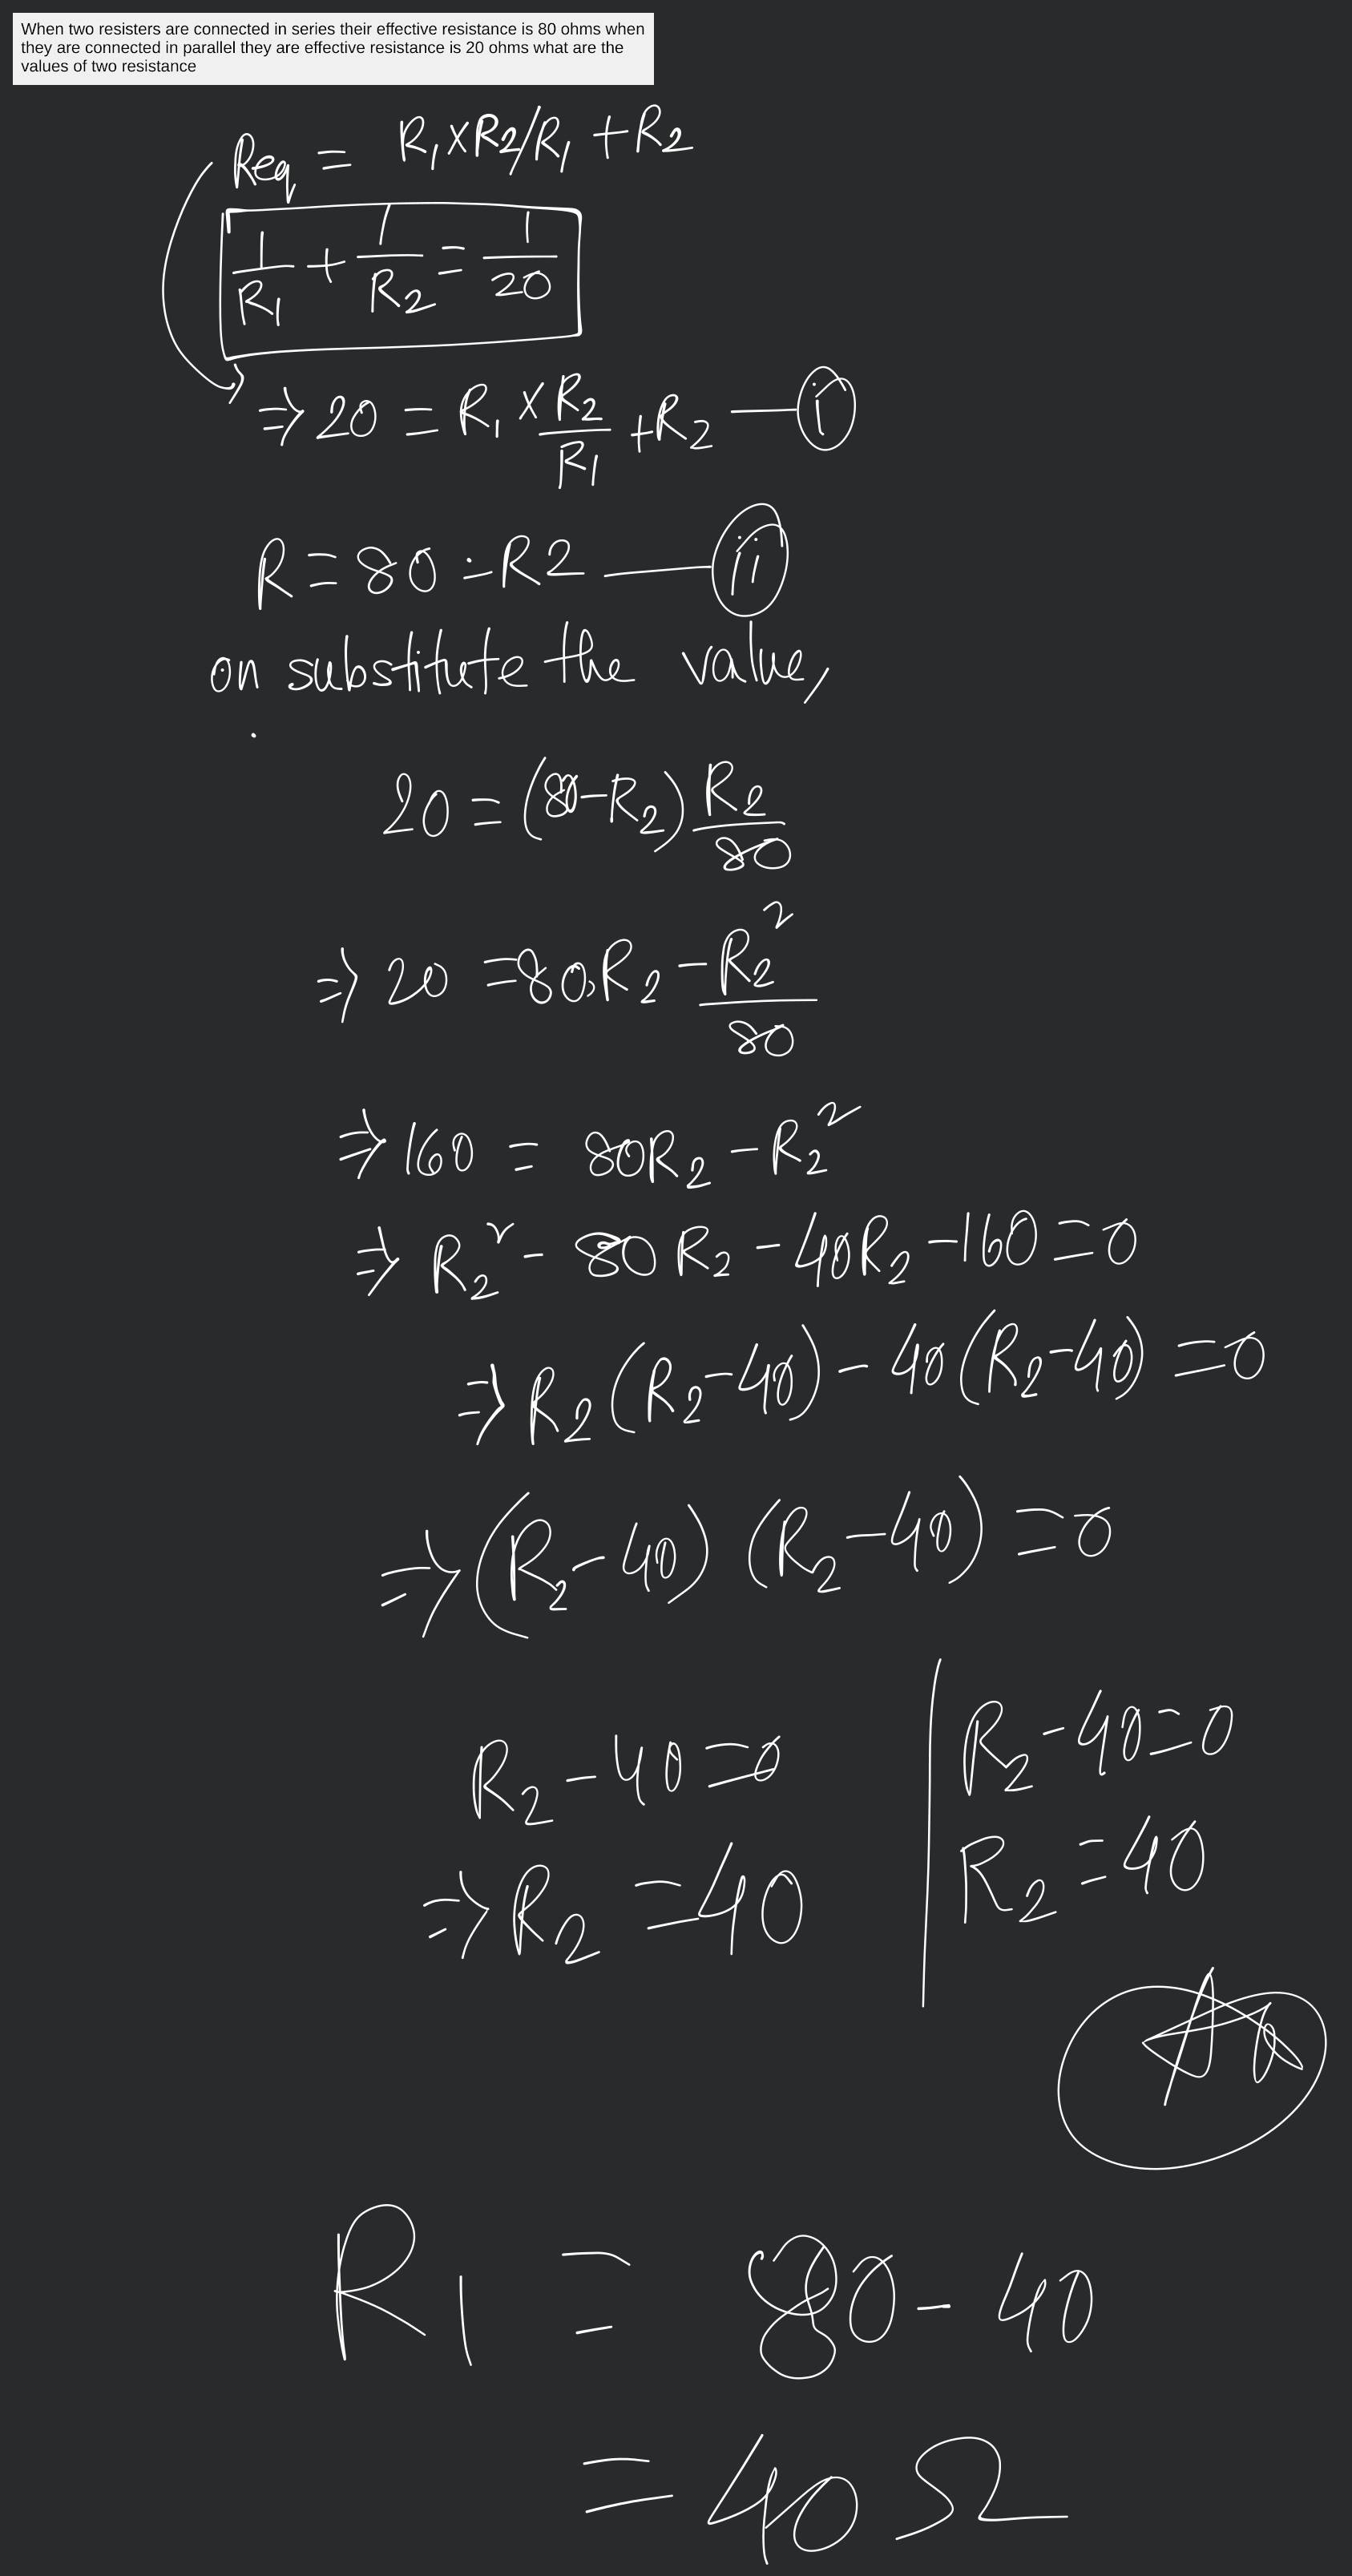 When two resisters are connected in series their effective resistance is 80 ohms when
they are connected in parallel they are effective resistance is 20 ohms what are the
values of two resistance
Req = R₁×R2/R₁ +R₂
1/R₁ + 1/R₂ = 1/20
⇒ 20 = R₁ × R₂/R₁ + R₂ — (i)
R = 80 - R2 — (ii)
on substitute the value,
20 = (80-R₂) R₂/80
⇒ 20 = 80R₂ - R₂²/80
⇒ 160 = 80R₂ - R₂²
⇒ R₂² - 80R₂ - 40R₂ - 160 = 0
⇒ R₂(R₂-40) - 40(R₂-40) = 0
⇒ (R₂-40) (R₂-40) = 0
R₂ - 40 = 0
⇒ R₂ = 40
R₂ - 40 = 0
R₂ = 40
R₁ = 80 - 40
= 40 Ω